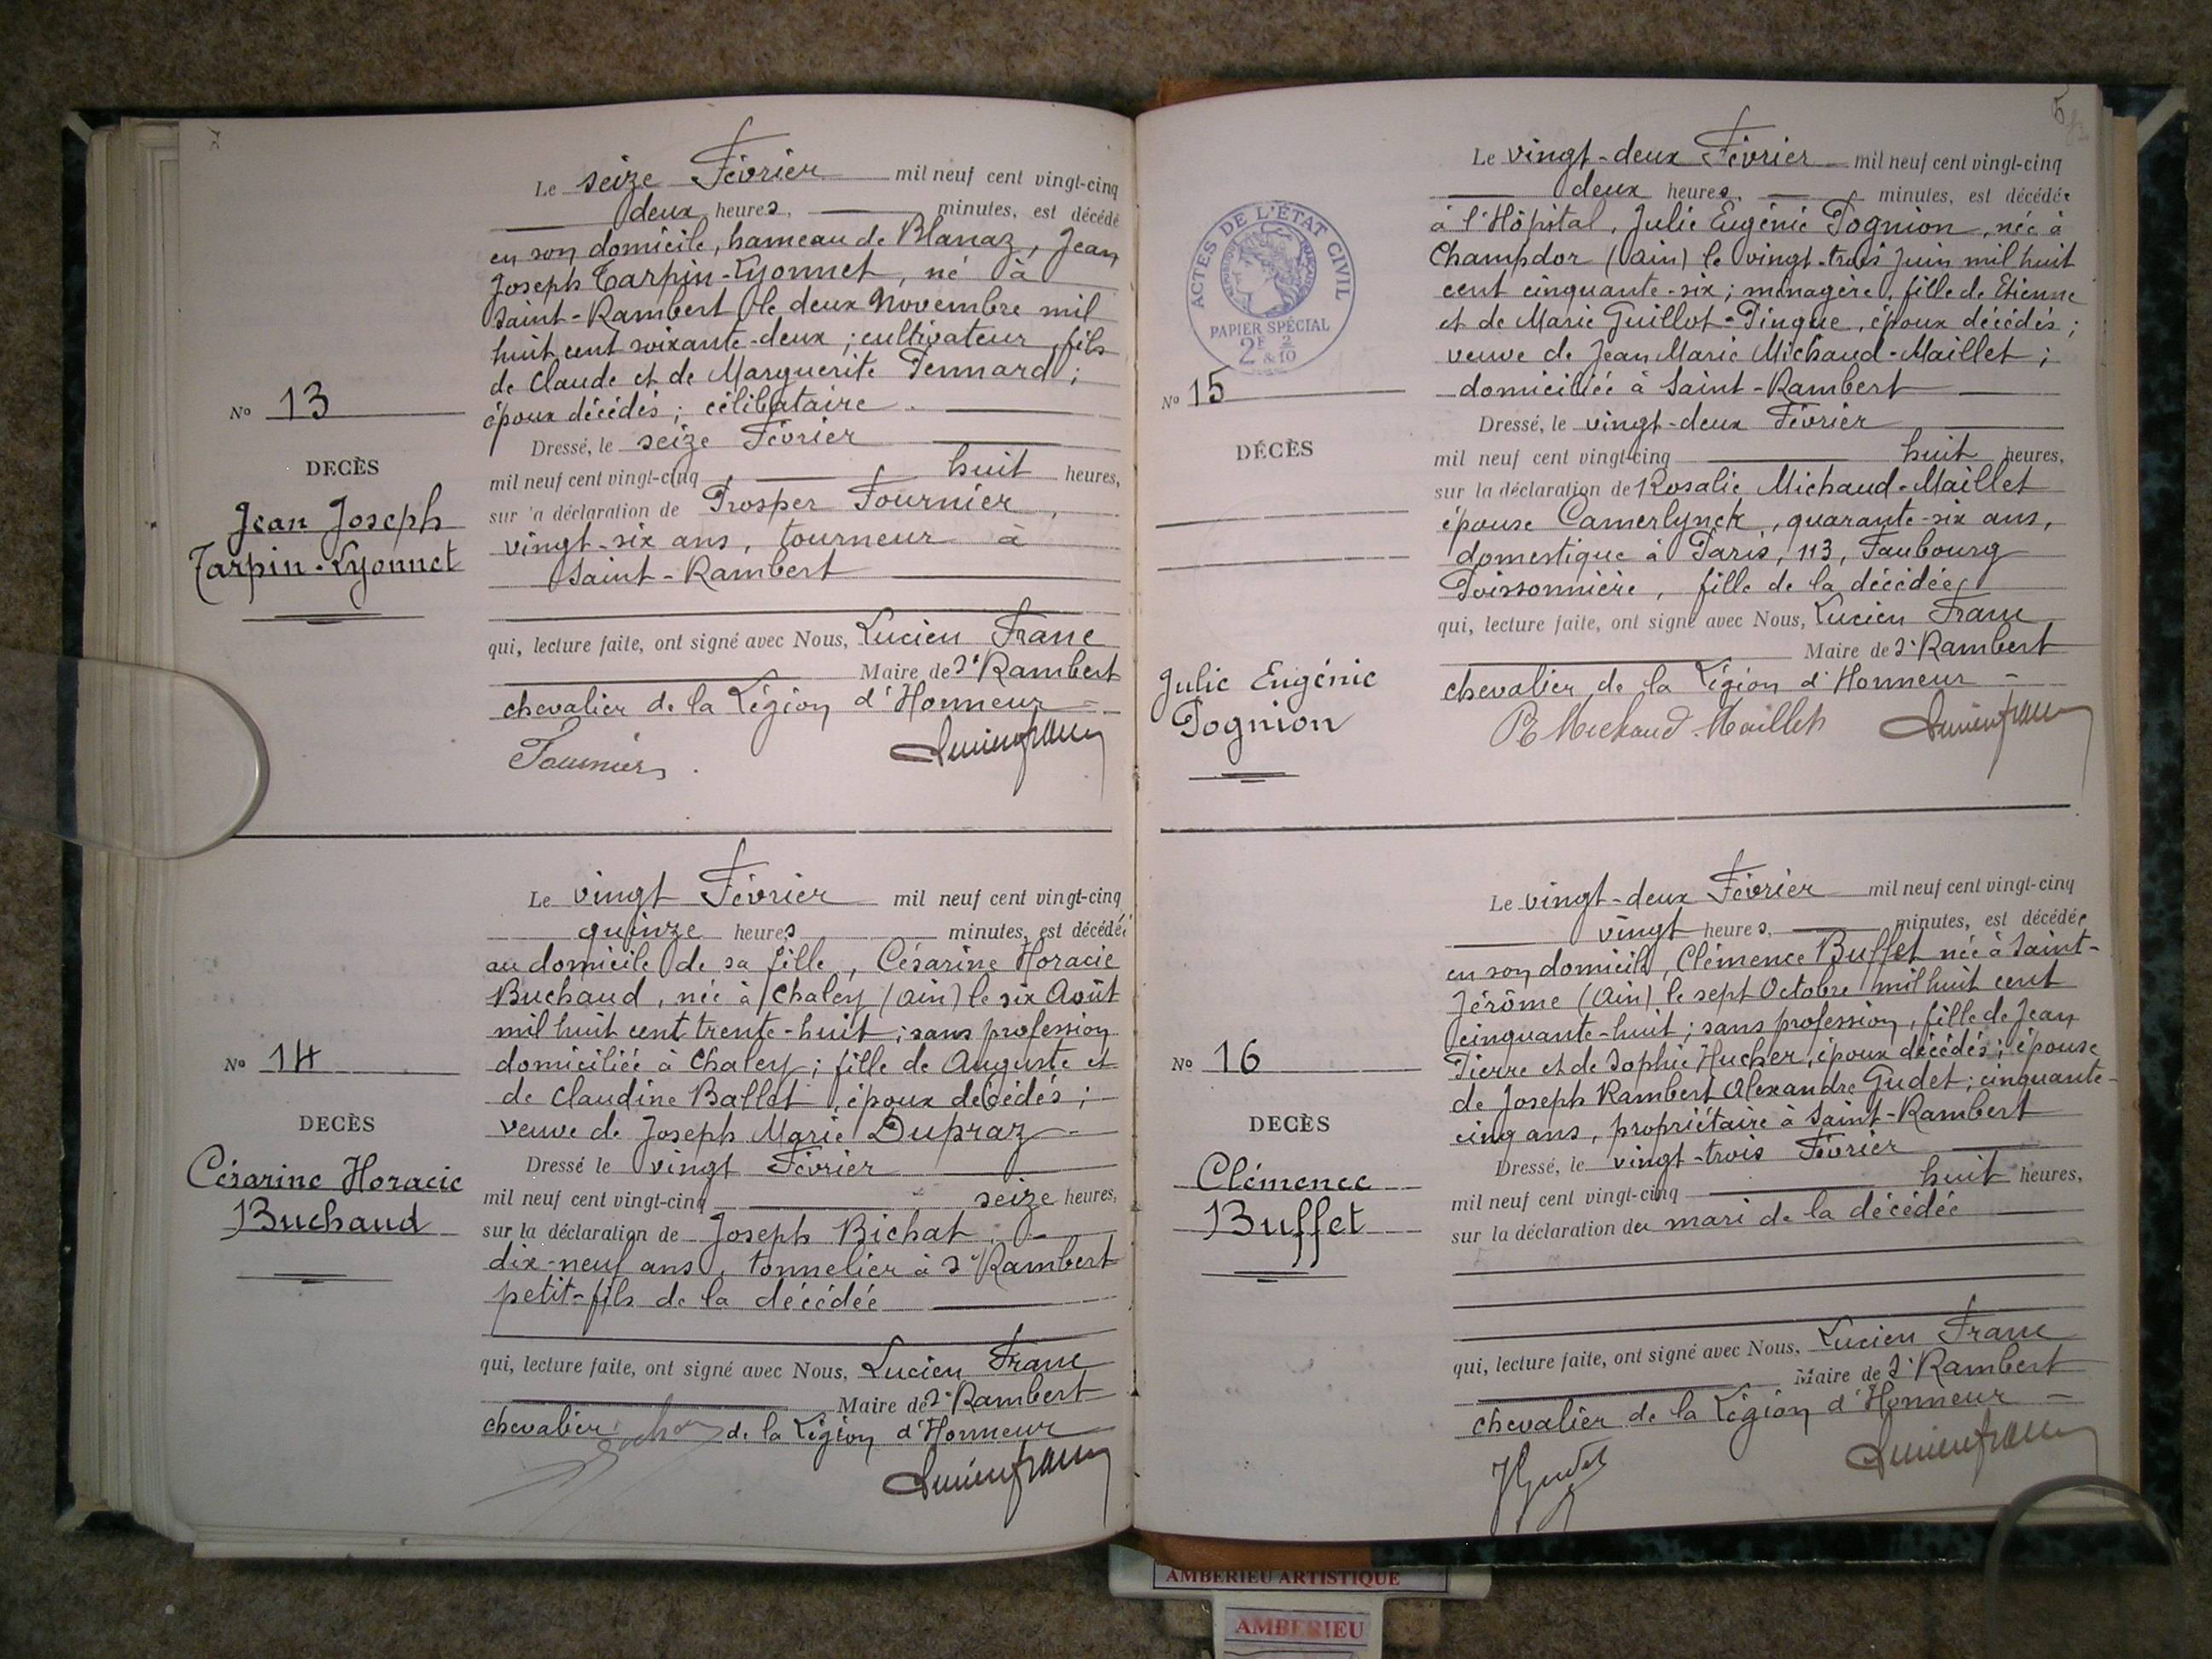 Le seize Février mil neuf cent vingt-cinq
deux heures, minutes, est décédé
en son domicile, hameau de Blanaz, Jean
Joseph Tarpin-Lyonnet, né à
Saint-Rambert le deux Novembre mil
huit cent soixante-deux ; cultivateur, fils
de Claude et de Marguerite Pennard ;
époux décédés ; célibataire
Nº 13
DECÈS
Jean Joseph
Tarpin-Lyonnet
Dressé, le seize Février
mil neuf cent vingt-cinq, huit heures,
sur la déclaration de Prosper Fournier,
vingt-six ans, tourneur à
Saint-Rambert
qui, lecture faite, ont signé avec Nous, Lucien Franc
Maire de St Rambert
chevalier de la Légion d'Honneur
Fournier
Le vingt Février mil neuf cent vingt-cinq
quinze heures minutes, est décédée
au domicile de sa fille, Césarine Horacie
Buchaud, née à Chaley (Ain) le six Août
mil huit cent trente-huit ; sans profession
domiciliée à Chaley ; fille de Auguste et
de Claudine Ballet, époux décédés ;
veuve de Joseph Marie Dupraz
Nº 14
DECÈS
Césarine Horacie
Buchaud
Dressé le vingt Février
mil neuf cent vingt-cinq seize heures,
sur la déclaration de Joseph Bichat,
dix-neuf ans, tonnelier à St Rambert
petit-fils de la décédée
qui, lecture faite, ont signé avec Nous, Lucien Franc
Maire de St Rambert
chevalier de la Légion d'Honneur
5
Le vingt-deux Février mil neuf cent vingt-cinq
deux heures, minutes, est décédée
à l'Hôpital, Julie Eugénie Pognion, née à
Champdor (Ain) le vingt-trois Juin mil huit
cent cinquante-six ; ménagère, fille de Etienne
et de Marie Guillot-Pingue, époux décédés ;
veuve de Jean Marie Michaud-Maillet ;
domiciliée à Saint-Rambert
ACTES DE L'ÉTAT CIVIL
PAPIER SPÉCIAL
2F & 2/10
Nº 15
DÉCÈS
Julie Eugénie
Pognion
Dressé, le vingt-deux Février
mil neuf cent vingt-cinq huit heures,
sur la déclaration de Rosalie Michaud-Maillet
épouse Camerlynck, quarante-six ans,
domestique à Paris, 113, Faubourg
Poissonnière, fille de la décédée
qui, lecture faite, ont signé avec Nous, Lucien Franc
Maire de St Rambert
chevalier de la Légion d'Honneur
R Michaud-Maillet
Le vingt-deux Février mil neuf cent vingt-cinq
vingt heures, minutes, est décédée
en son domicile, Clémence Buffet née à Saint-
Jérôme (Ain) le sept Octobre mil huit cent
cinquante-huit ; sans profession, fille de Jean
Pierre et de Sophie Hucher, époux décédés ; épouse
de Joseph Rambert Alexandre Gudet ; cinquante-
cinq ans, propriétaire à Saint-Rambert
Nº 16
DECÈS
Clémence
Buffet
Dressé, le vingt-trois Février
mil neuf cent vingt-cinq huit heures,
sur la déclaration du mari de la décédée
qui, lecture faite, ont signé avec Nous, Lucien Franc
Maire de St Rambert
chevalier de la Légion d'Honneur
JGudet
AMBERIEU ARTISTIQUE
AMBERIEU